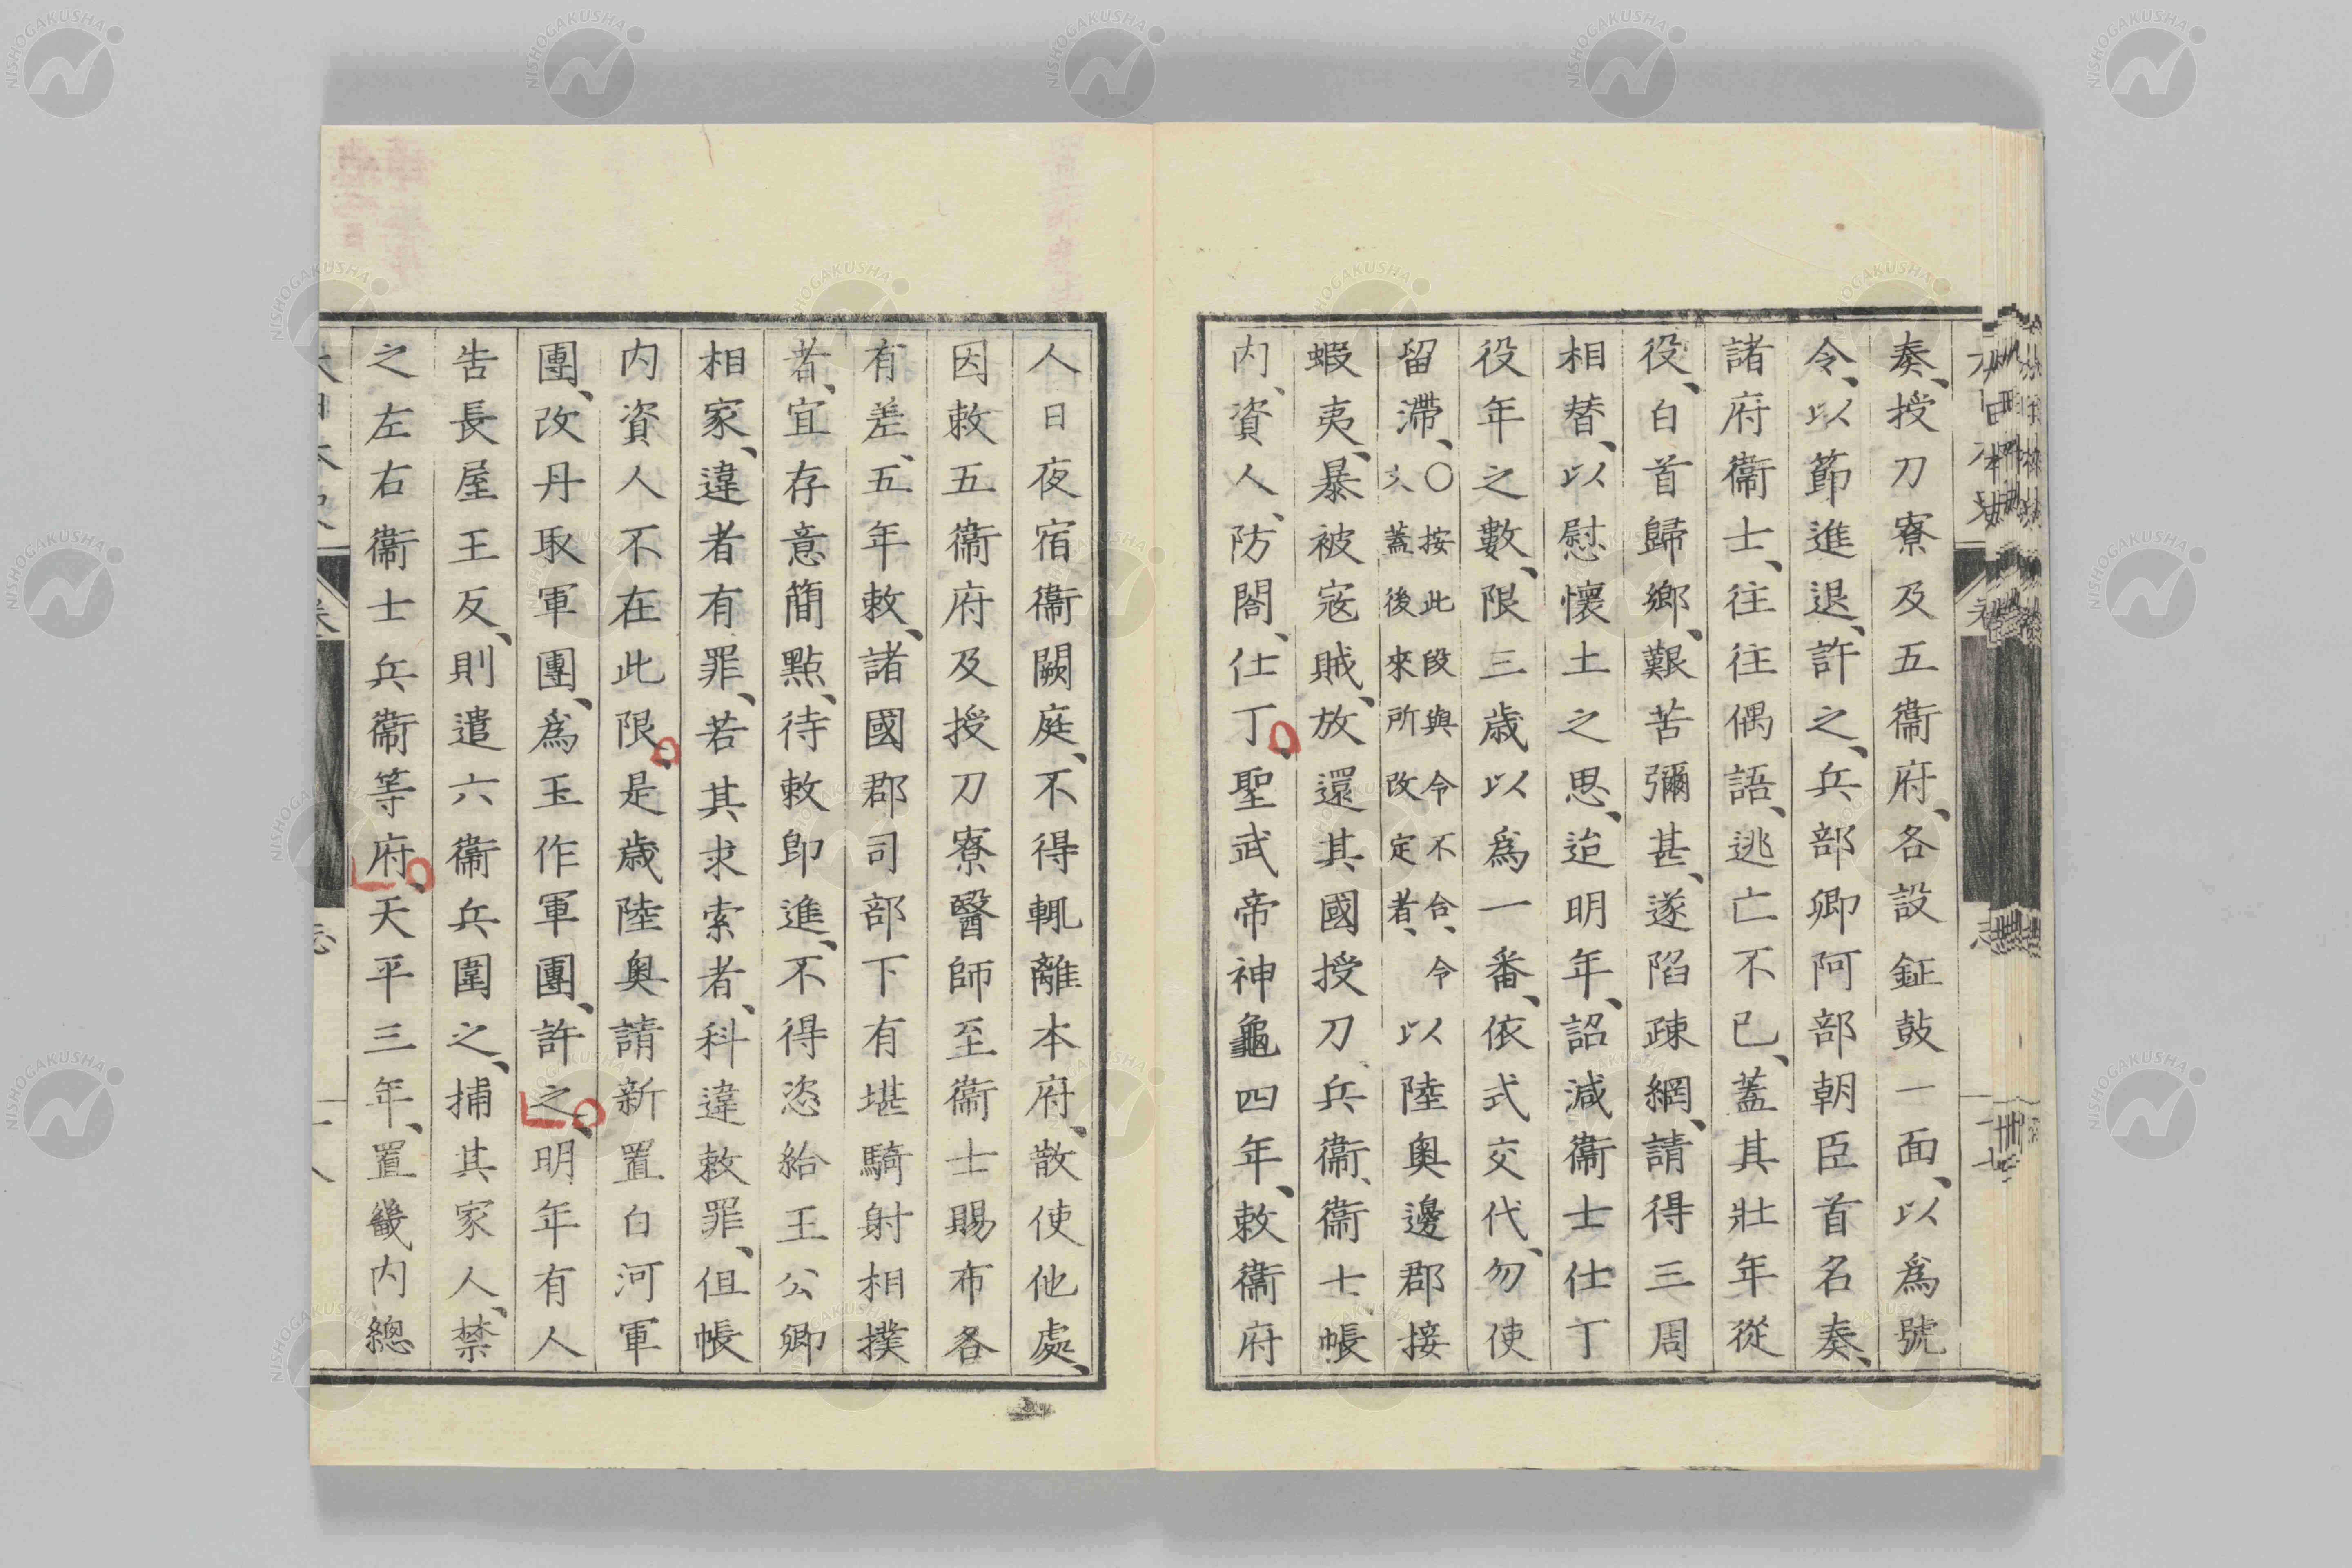 奏、授刀寮及五衞府、各設鉦鼓一面、以爲號
令、以節進退、許之、兵部卿阿部朝臣首名奏、
諸府衞士、往往偶語、逃亡不已、蓋其壯年從
役、白首歸鄉、艱苦彌甚、遂陷疎網、請得三周
相替、以慰懷土之思、迨明年、詔減衞士仕丁
役年之數、限三歲以爲一番、依式交代、勿使
留滯、〇按此段與令不合、令
文蓋後來所改定者、以陸奧邊郡接
蝦夷、暴被寇賊、放還其國授刀、兵衞、衞士、帳
内、資人、防閤、仕丁、聖武帝神龜四年、敕衞府
人日夜宿衞闕庭、不得輒離本府、散使他處、
因敕五衞府及授刀寮醫師至衞士賜布各
有差、五年敕、諸國郡司部下有堪騎射相撲
者、宜存意簡點、待敕卽進、不得恣給王公卿
相家、違者有罪、若其求索者、科違敕罪、但帳
内資人不在此限、是歲陸奧請新置白河軍
團、改丹取軍團、爲玉作軍團、許之、明年有人
告長屋王反、則遣六衞兵圍之、捕其家人、禁
之左右衞士兵衞等府、天平三年、置畿内總
NISHOGAKUSHA